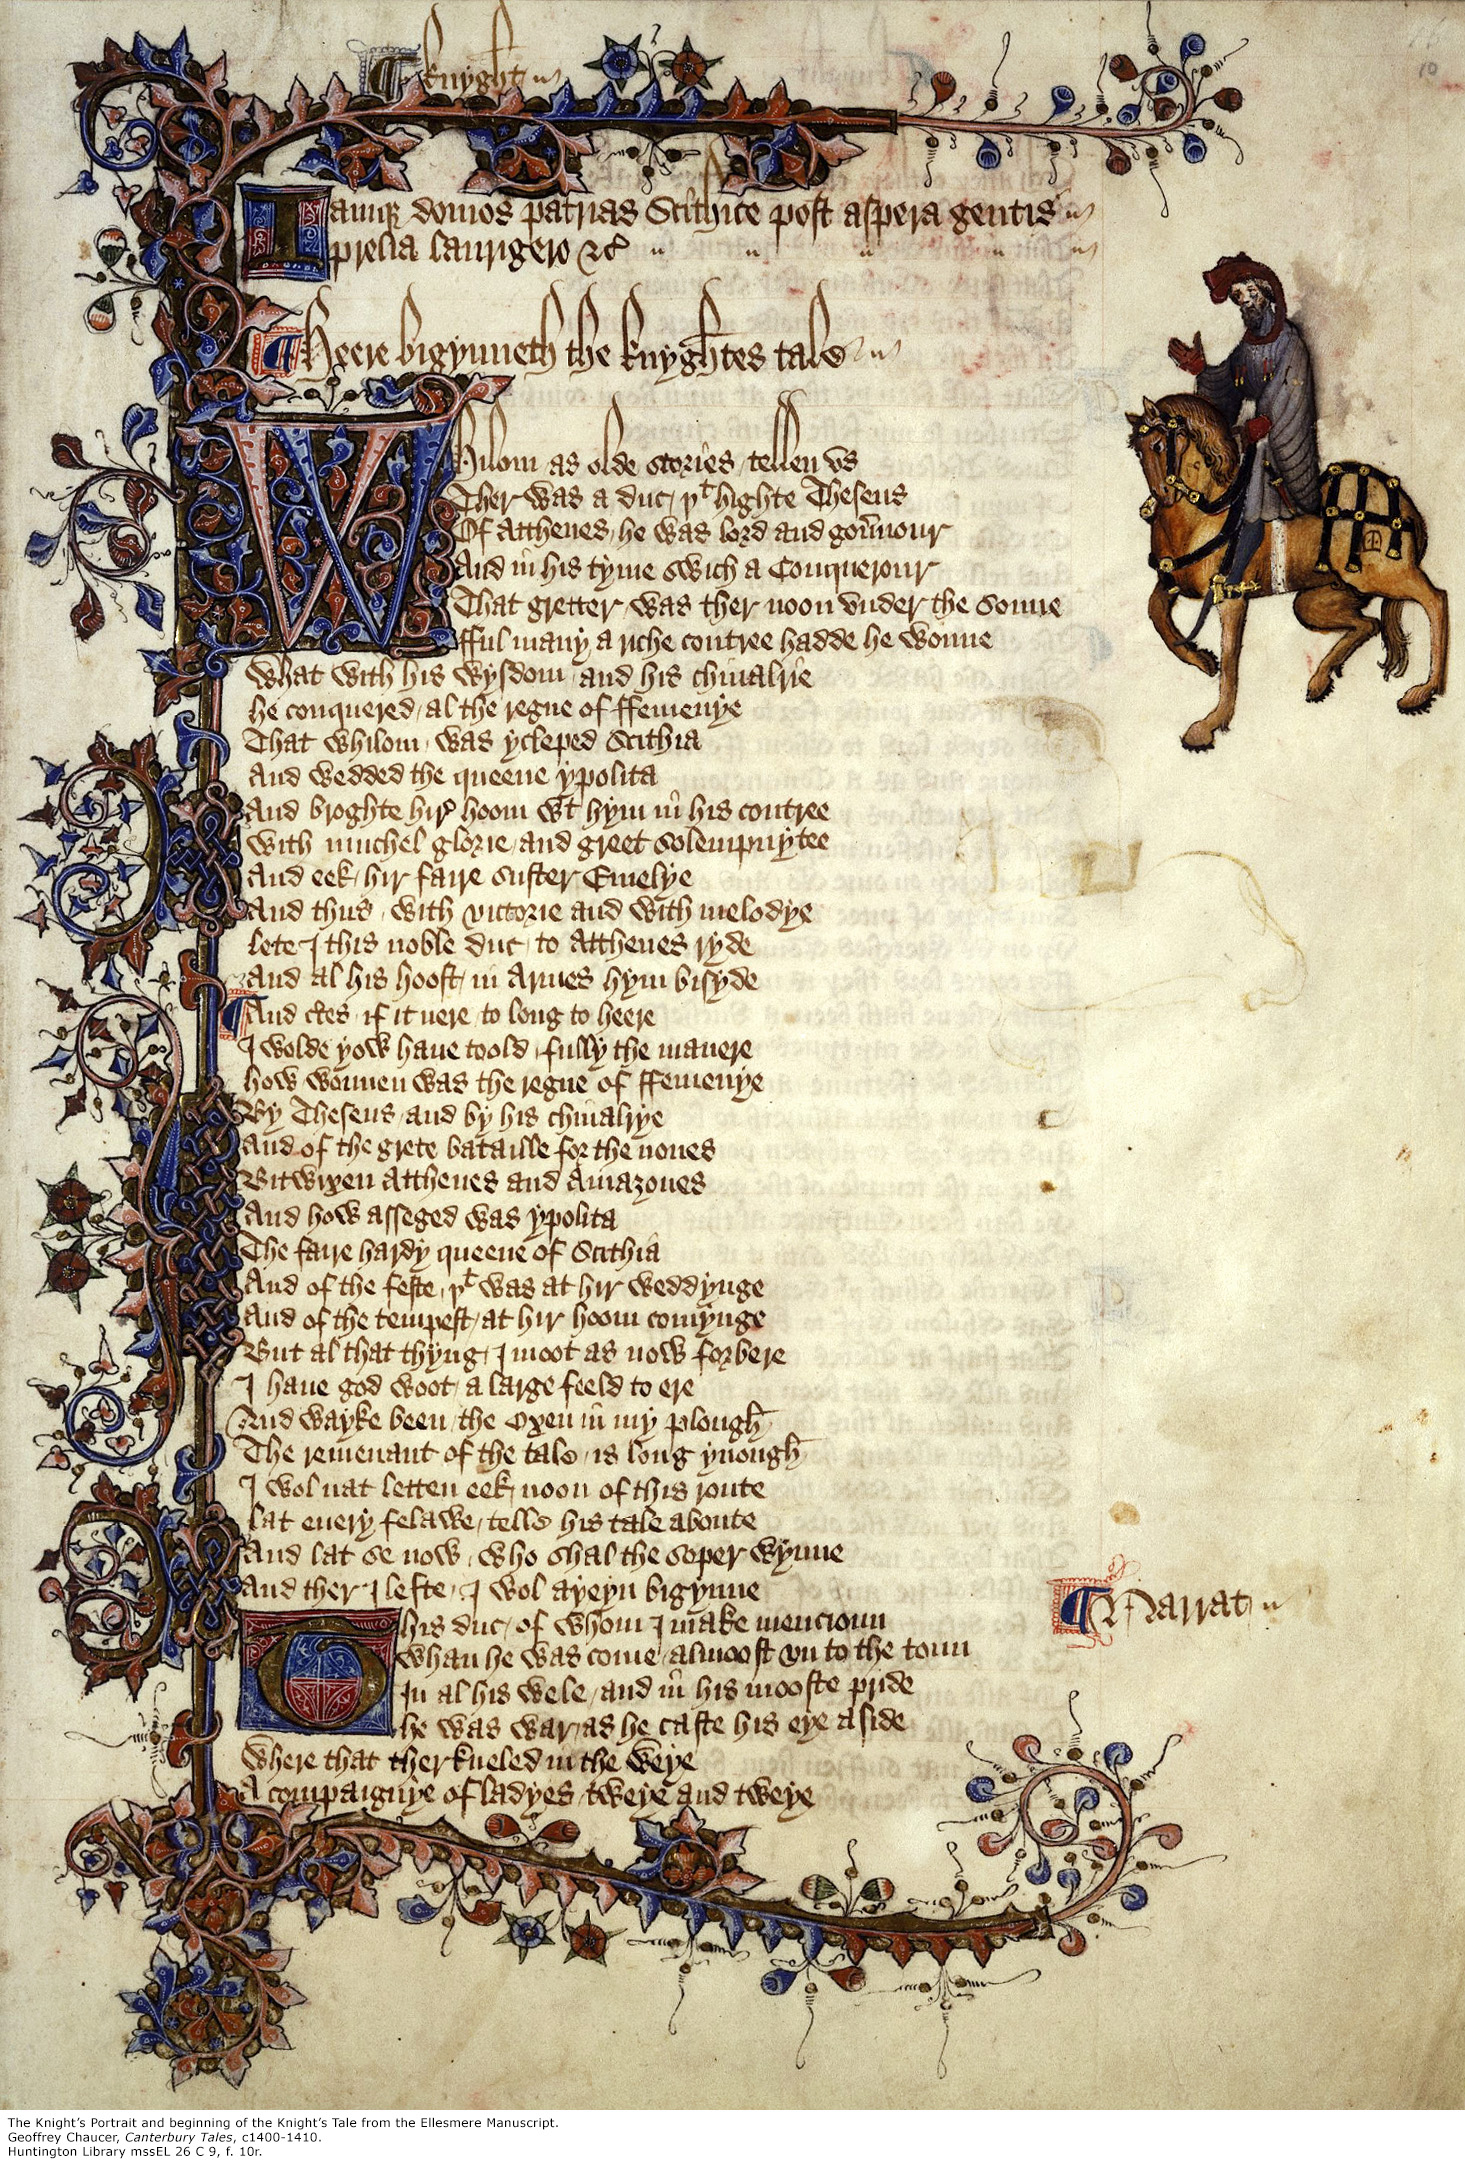 ¶ knyght
Iamq domos patrias Scithice post aspera gentis
prelia laurigero &c
¶ Heere bigynneth the knyghtes tale
Whilom as olde stories / tellen vs
Ther was a duc / þt highte Theseus
Of Atthenes / he was lord and gouernour
And in his tyme swich a Conquerour
That gretter / was ther noon vnder the sonne
fful many a riche contree hadde he wonne
What with his wysdom / and his chiualrie
he conquered / al the regne of ffemenye
That whilom / was ycleped Scithia
And wedded the queene ypolita
And broghte hire hoom wt hym in his contree
With muchel glorie / and greet solempnytee
And eek / hir faire suster Emelye
And thus / with victorie and with melodye
lete I this noble duc / to Atthenes ryde
And al his hoost / in Armes hym bisyde
¶ And ctes / if it nere / to long to heere
I wolde yow haue toold / fully the manere
how wonnen was the regne of ffemenye
By Theseus / and by his chiualrye
And of the grete bataille for the nones
Bitwixen Atthenes and Amazones
And how asseged was ypolita
The faire hardy queene of Scithia
And of the feste / þt was at hir weddynge
And of the tempest / at hir hoom comynge
But al that thyng / I moot as now forbere
I haue god woot / a large feeld to ere
And wayke been / the Oxen in my plough
The remenant of the tale / is long ynough
I wol nat letten eek / noon of this route
lat euery felawe / telle his tale aboute
And lat se now / who shal the soper wynne
And ther I lefte / I wol ayeyn bigynne
This duc / of whom I make mencioun
¶ Narrat
Whan he was come / almoost vn to the toun
In al his wele / and in his mooste pride
he was war / as he caste his eye aside
Where that ther kneled in the weye
A compaignye of ladyes / tweye and tweye
10
The Knight's Portrait and beginning of the Knight's Tale from the Ellesmere Manuscript.
Geoffrey Chaucer, Canterbury Tales, c1400-1410.
Huntington Library mssEL 26 C 9, f. 10r.